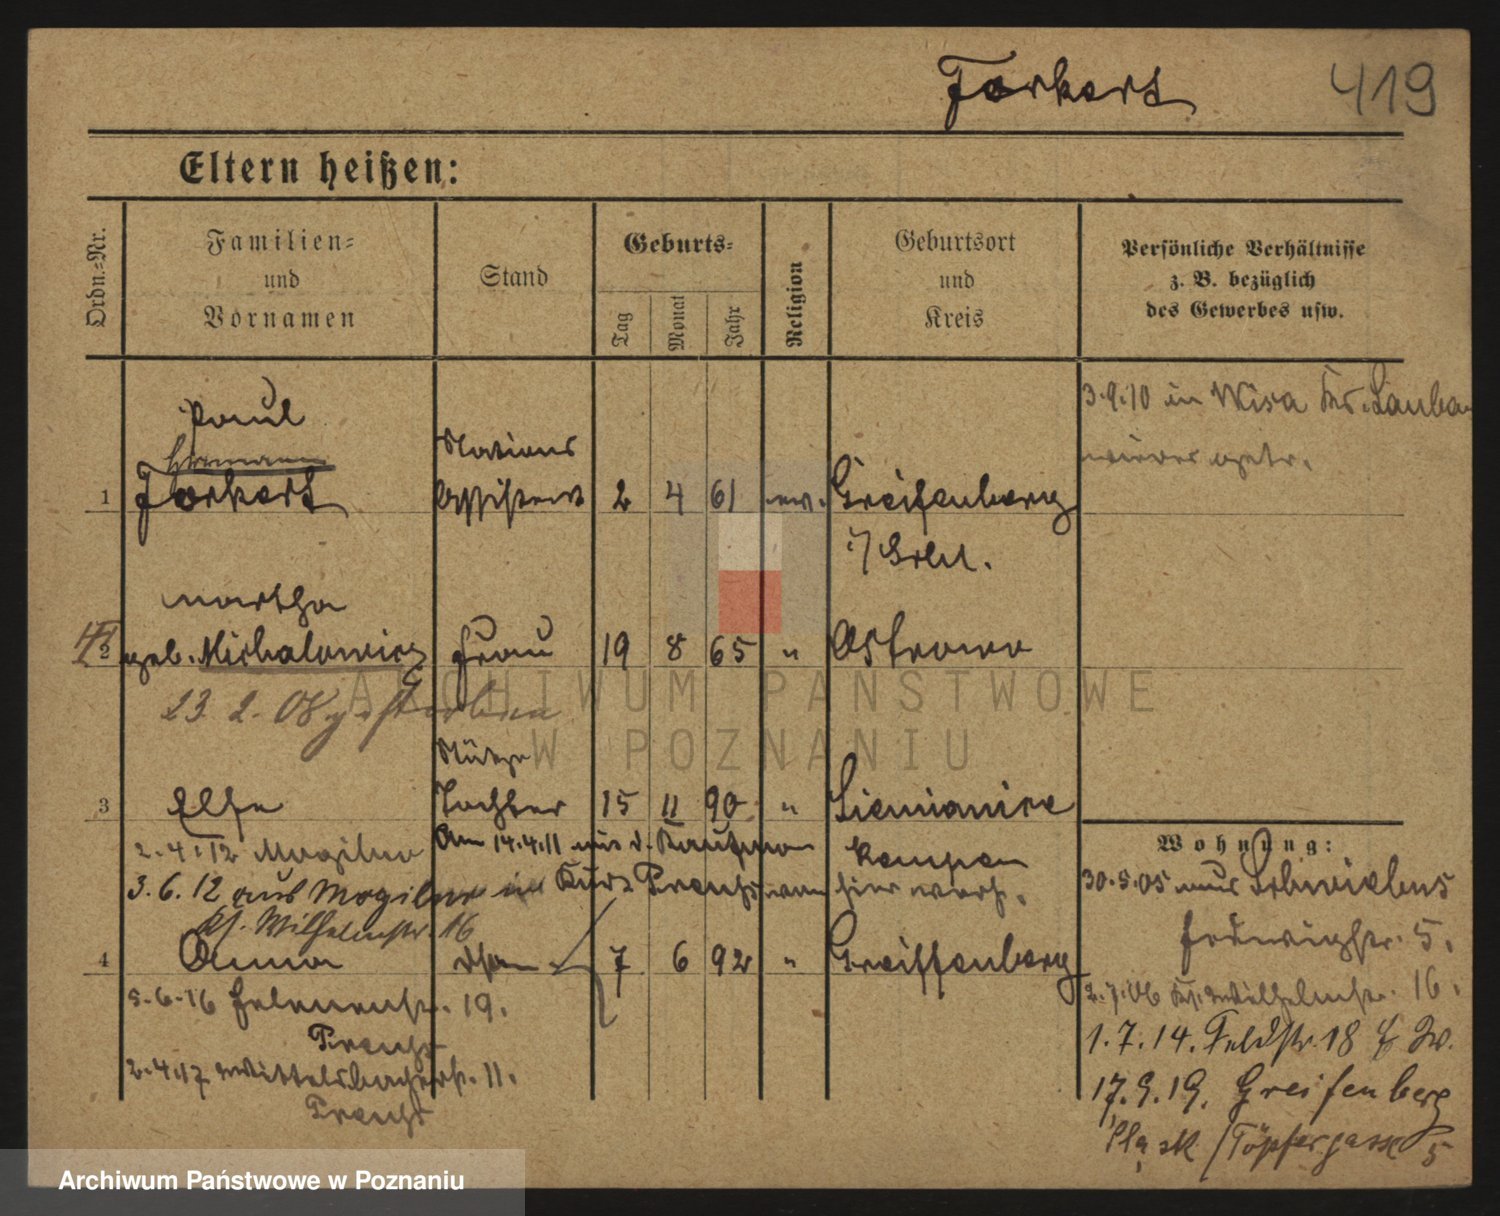 Forkert 419
Eltern heißen:
Ordn.-Nr.
Familien-
und
Vornamen
Stand
Geburts-
Tag
Monat
Jahr
Religion
Geburtsort
und
Kreis
Persönliche Verhältnisse
z. B. bezüglich
des Gewerbes usw.
3.9.10 in Wisa Krs. Lauban
wieder
Paul
Hermann
1 Forkert
Stations
Assistent 2 4 61 ev. Greifenberg
i/ Schl.
Martha
2 geb. Michalowicz Frau 19 8 65 " Ostrowo
23. 2. 08 gestorben
Stütze
3 Else Tochter 15 11 90 " Siemianice
Kempen
2.4.12 Mogilno
Am 14.4.11 mit d. Kaufmann
3.6.12 aus Mogilno in
Kurt
hier verh.
Wilhelmstr. 16
4 Anna 7 6 92 " Greiffenberg
5.6.16 Helenenstr. 19.
2.4.17 Wittelsbacherstr. 11.
Wohnung:
30.5.05 aus Schwiebus
Hedwigstr. 5.
2.7.06 Wilhelmstr. 16.
1.7.14. Feldstr. 18
17.9.19. Greifenberg
Töpfergasse 5
ARCHIWUM PAŃSTWOWE
W POZNANIU
Archiwum Państwowe w Poznaniu